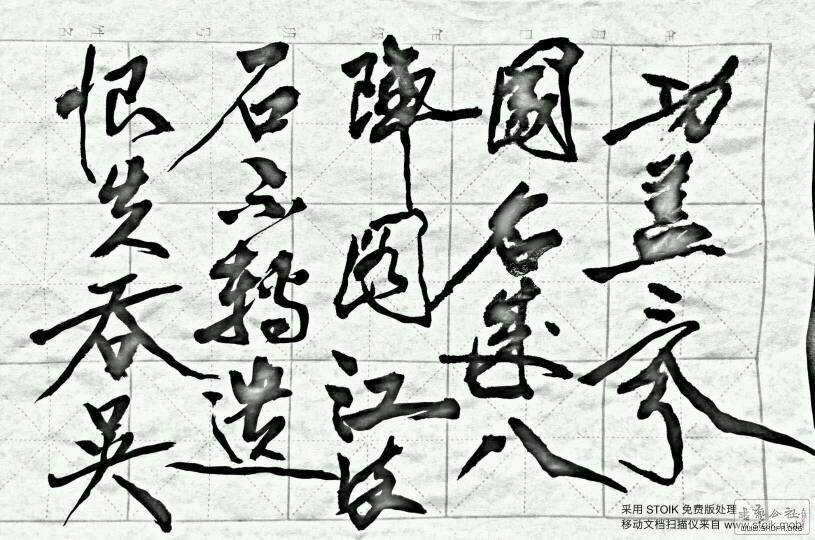 功盖三分
國名成八
陣图江流
石不轉遗
恨失吞吴
采用 STOIK 免费版处理
移动文档扫描仪来自 www.stoik.mobi